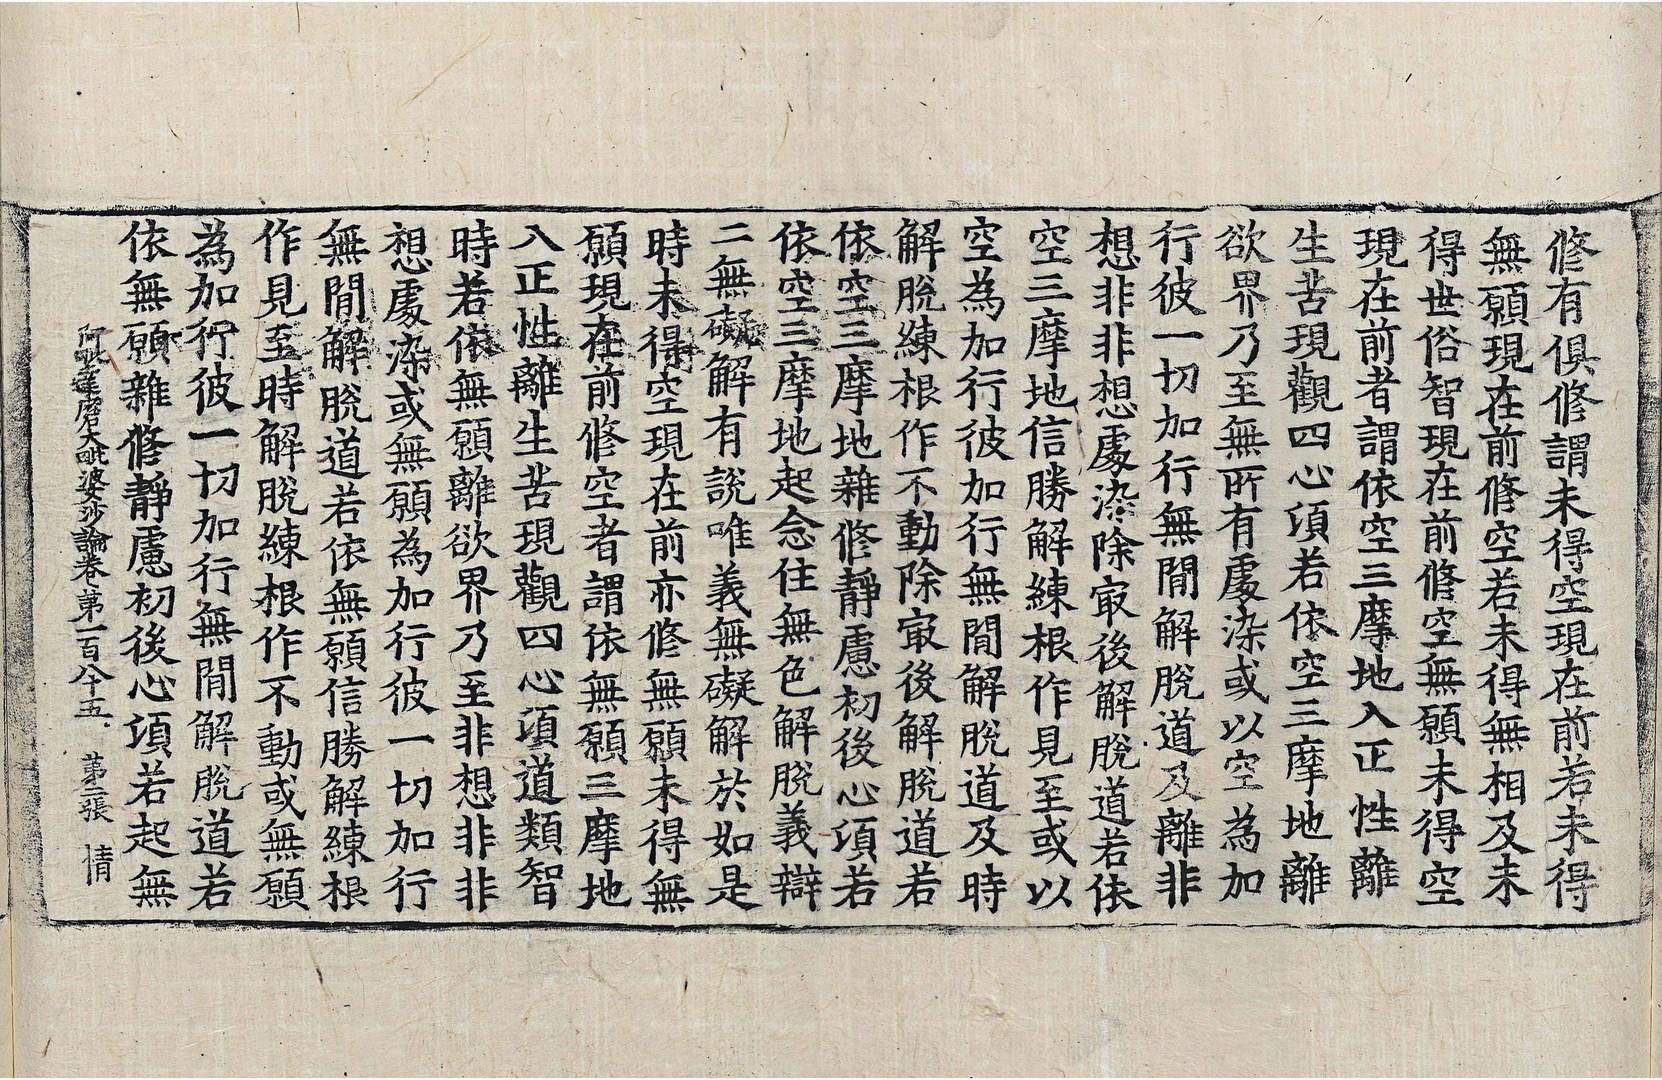 修有俱修謂未得空現在前若未得
無願現在前修空若未得無相及未
得世俗智現在前修空無願未得空
現在前者謂依空三摩地入正性離
生苦現觀四心頃若依空三摩地離
欲界乃至無所有處染或以空為加
行彼一切加行無間解脫道及離非
想非非想處染除冣後解脫道若依
空三摩地信勝解練根作見至或以
空為加行彼加行無間解脫道及時
解脫練根作不動除冣後解脫道若
依空三摩地雜修靜慮初後心頃若
依空三摩地起念住無色解脫義辯
二無礙解有說唯義無礙解於如是
時未得空現在前亦修無願未得無
願現在前修空者謂依無願三摩地
入正性離生苦現觀四心頃道類智
時若依無願離欲界乃至非想非非
想處染或無願為加行彼一切加行
無間解脫道若依無願信勝解練根
作見至時解脫練根作不動或無願
為加行彼一切加行無間解脫道若
依無願雜修靜慮初後心頃若起無
阿毗達磨大毗婆沙論卷第一百八十五 第二張 情